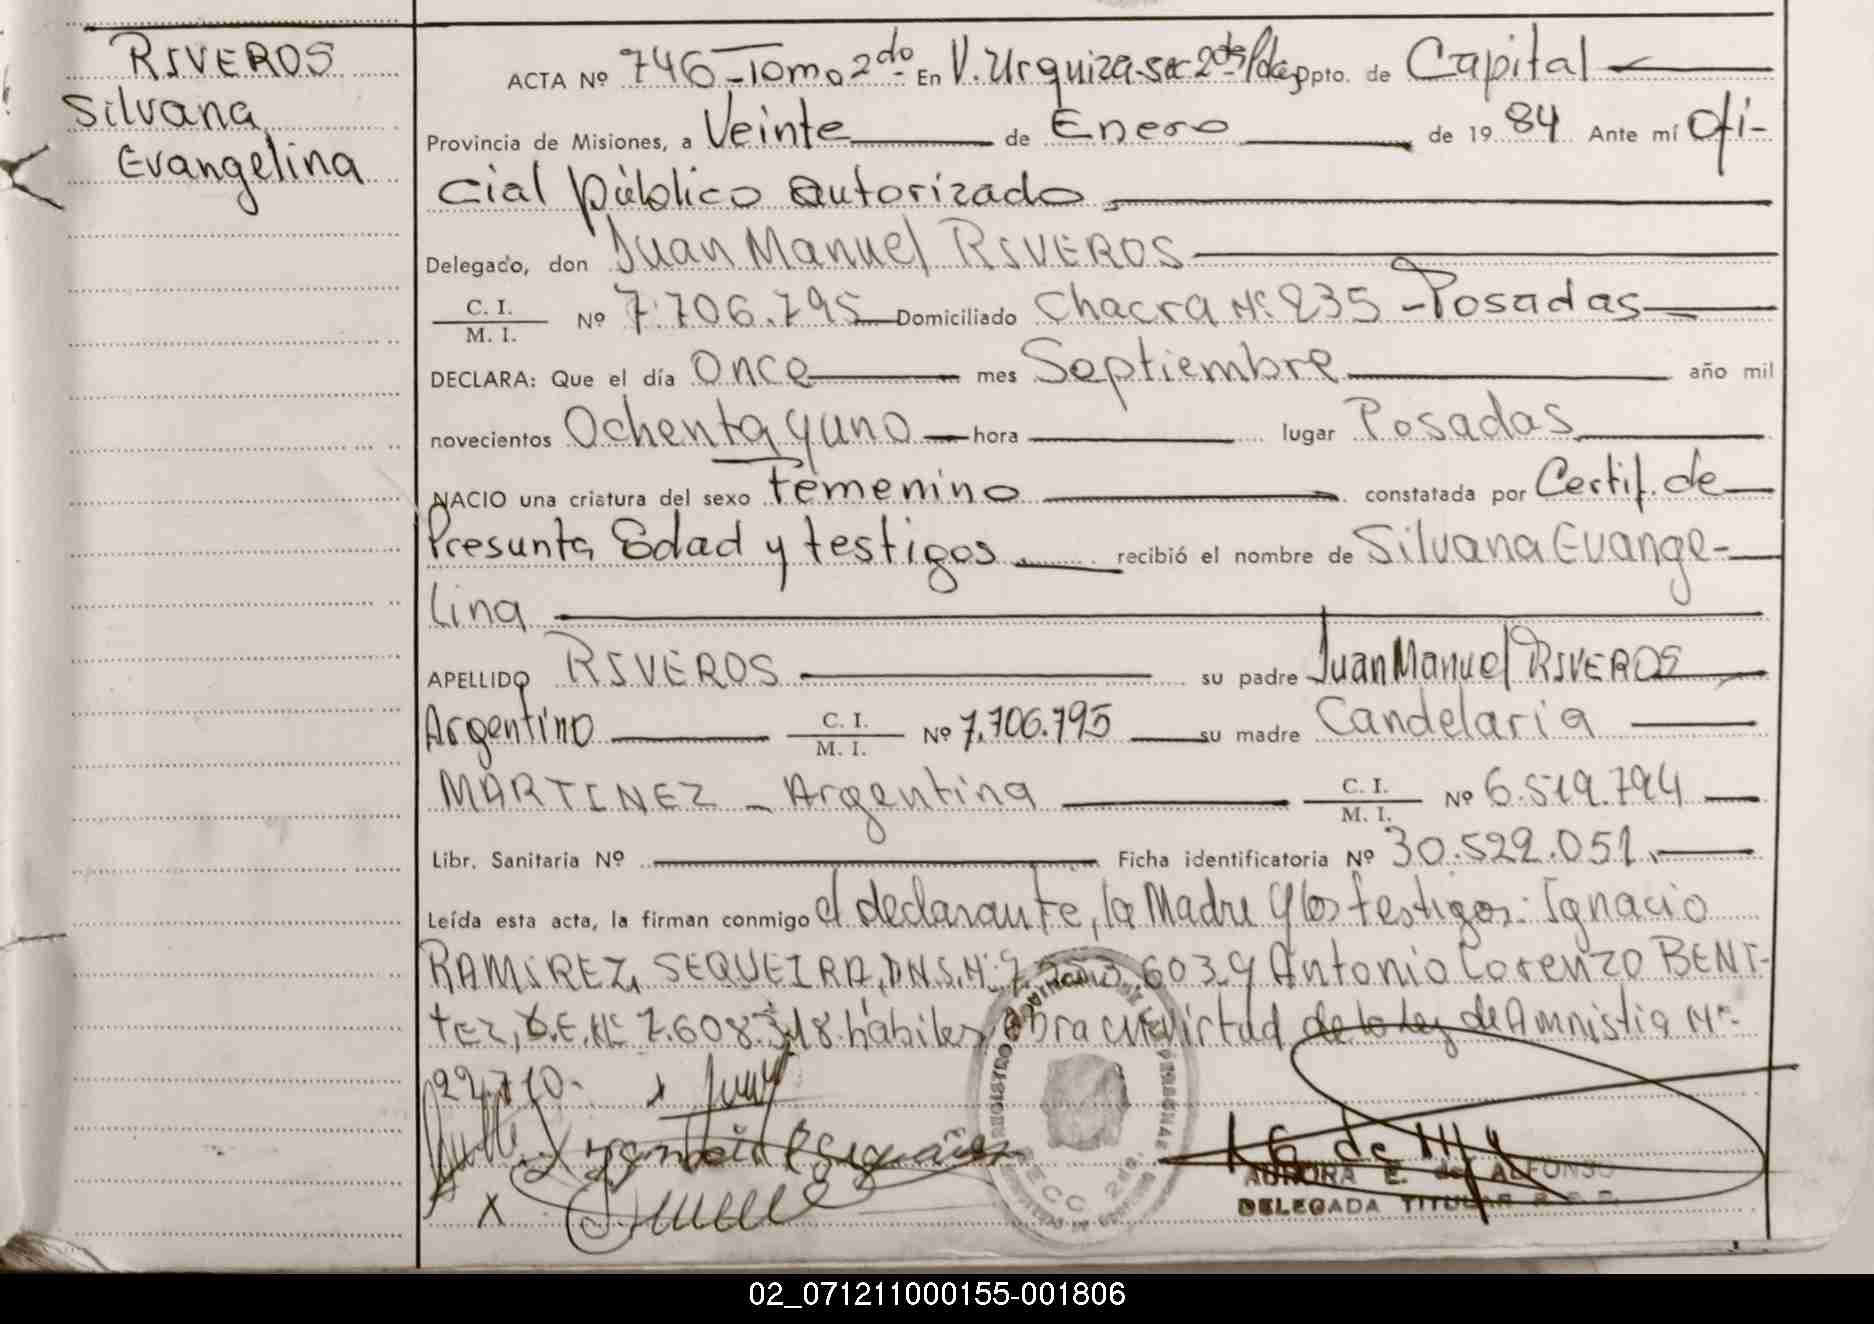 RIVEROS
Silvana
Evangelina
ACTA Nº 746 - Tomo 2do En V. Urquiza Dpto. de Capital
Provincia de Misiones, a Veinte de Enero de 1984 Ante mí Ofi-
cial público autorizado
Delegado, don Juan Manuel RIVEROS
C. I.
M. I. Nº 7.706.795 Domiciliado Chacra Nº 235 - Posadas
DECLARA: Que el día Once mes Septiembre año mil
novecientos Ochenta y uno hora lugar Posadas
NACIO una criatura del sexo femenino constatada por Certif. de
Presunta Edad y testigos recibió el nombre de Silvana Evange-
lina
APELLIDO RIVEROS su padre Juan Manuel RIVEROS
Argentino C. I. M. I. Nº 7.706.795 su madre Candelaria
MARTINEZ - Argentina C. I. M. I. Nº 6.519.794
Libr. Sanitaria Nº Ficha identificatoria Nº 30.522.051.
Leída esta acta, la firman conmigo el declarante, la Madre y los testigos: Ignacio
RAMIREZ SEQUEIRA, D.N.I. Nº 603 y Antonio Lorenzo BENI-
tez, Nº 7.608.318 hábiles, virtud de la ley de Amnistia Nº
22.710.
AURORA E. de ALFONSO
DELEGADA TITULAR
02_071211000155-001806